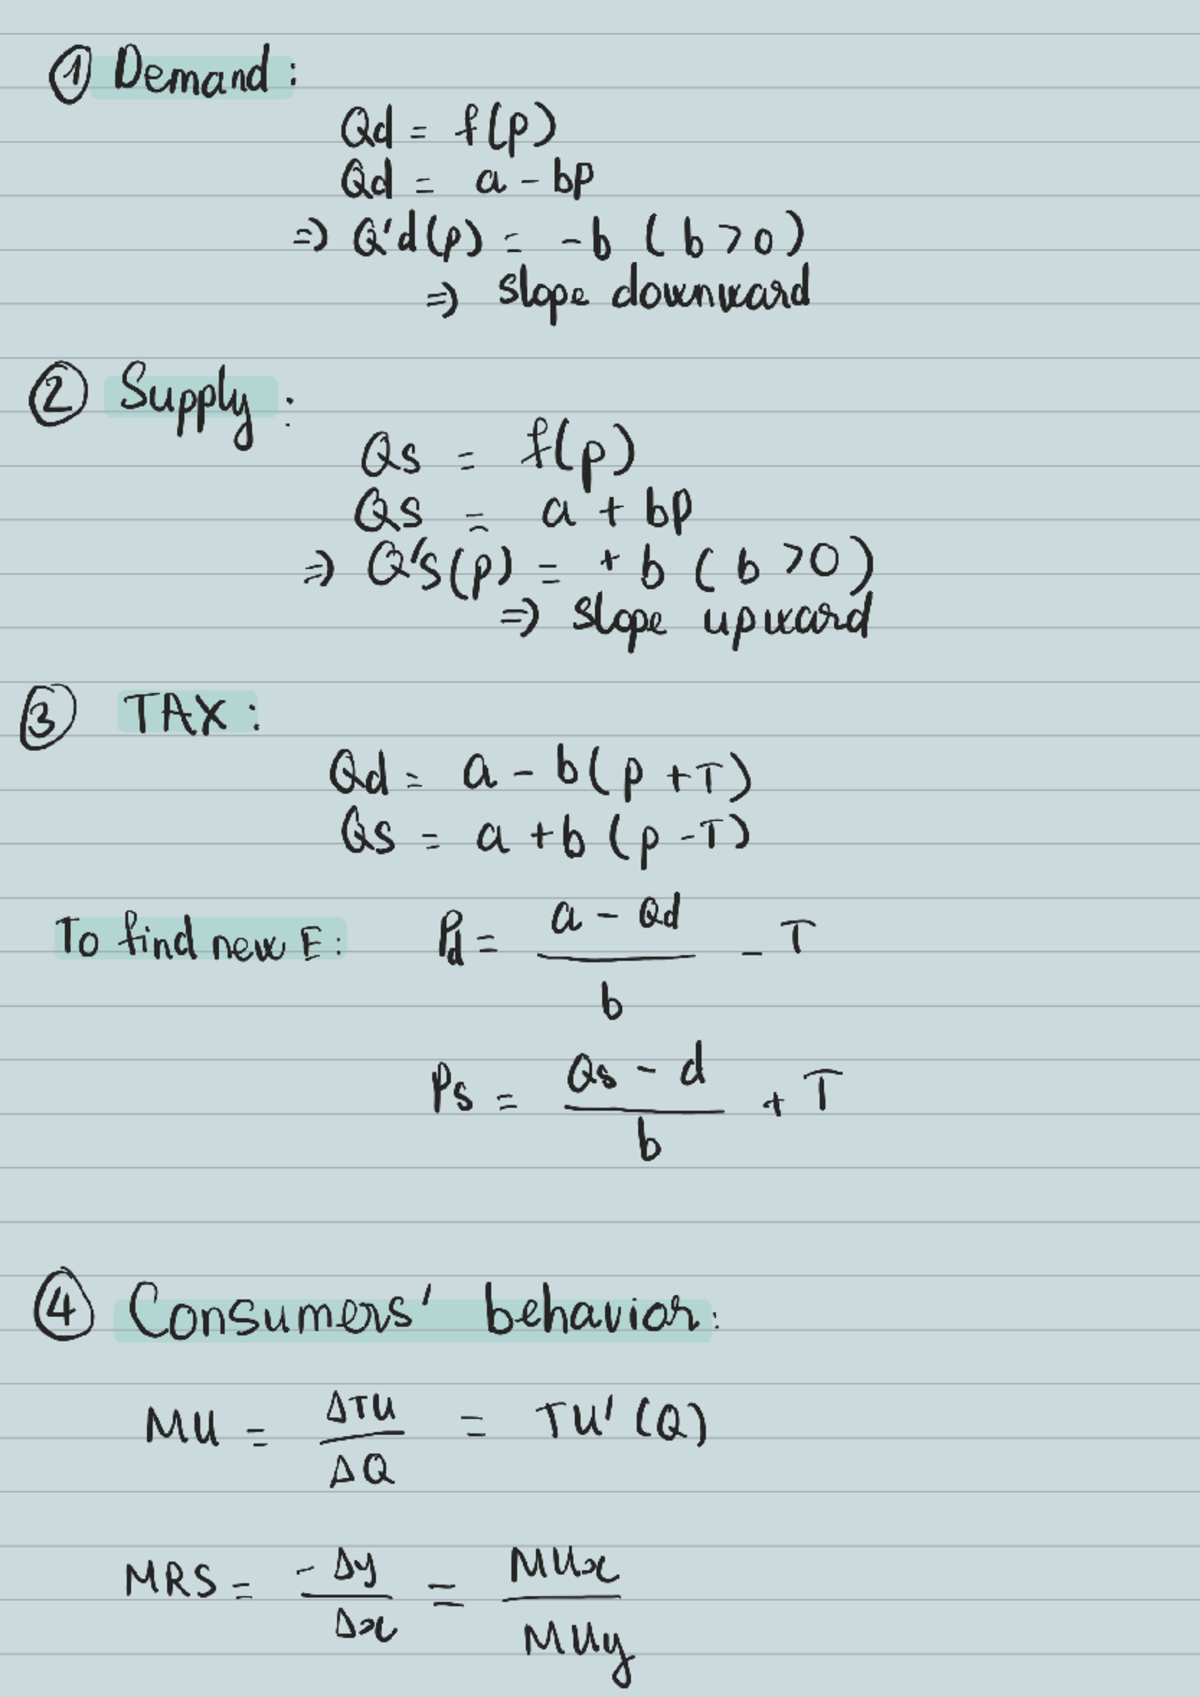 ① Demand:
Qd = f(p)
Qd = a - bp
=> Q'd(p) = -b (b>0)
=> slope downward
② Supply:
Qs = f(p)
Qs = a + bp
=> Q's(p) = +b (b>0)
=> slope upward
③ TAX:
Qd = a - b(p+T)
Qs = a+b (p-T)
To find new E: Pd = (a - Qd)/b - T
Ps = (Qs - d)/b + T
④ Consumers' behavior:
MU = ΔTU/ΔQ = TU'(Q)
MRS = -Δy/Δx = MUx/MUy